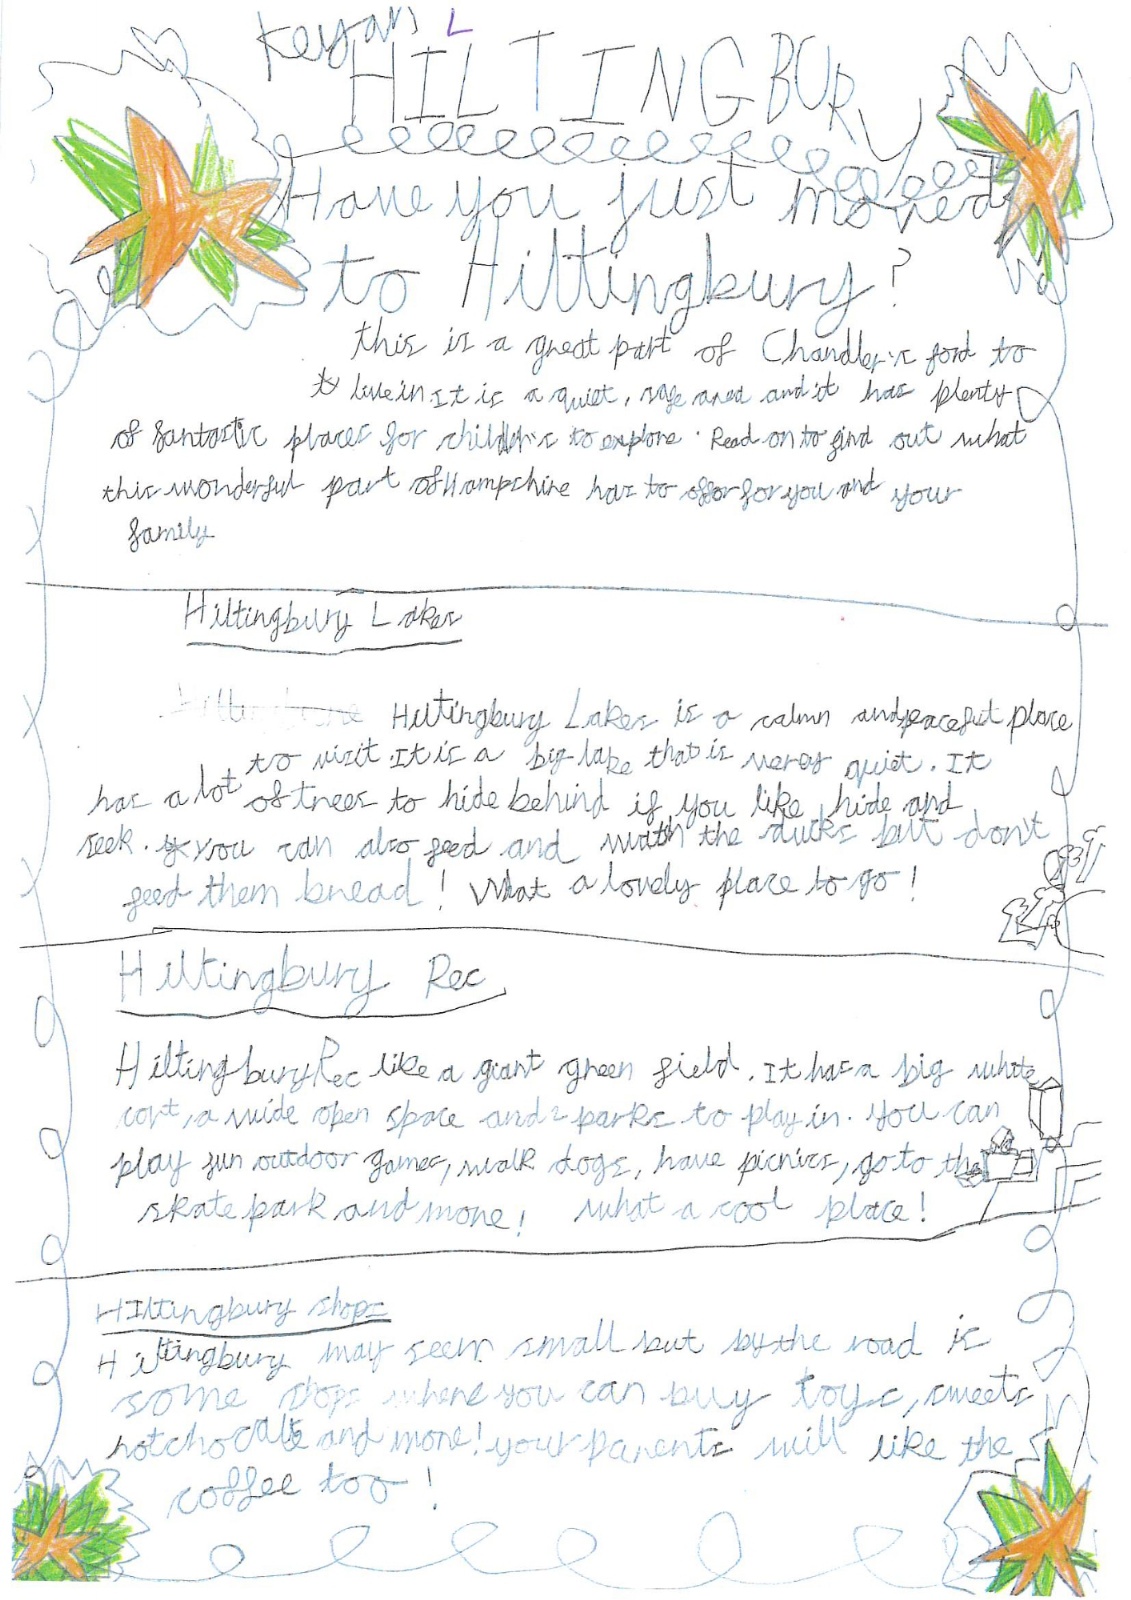 Keyan L
HILTINGBURY
Have you just moved
to Hiltingbury?
this is a great part of Chandler's ford to
live in It is a quiet, safe area and it has plenty
of fantastic places for children's to explore. Read on to find out what
this wonderful part of Hampshire has to offer for you and your
family
Hiltingbury Lakes
Hiltingbury Lakes is a calmn and peaceful place
to visit. It is a big lake that is verey quiet. It
has a lot of trees to hide behind if you like hide and
seek. you can also feed and watch the ducks but don't
feed them bread! What a lovely place to go!
Hiltingbury Rec
Hiltingbury Rec like a giant green field. It has a big white
cort, a wide open space and 2 parks to play in. You can
play fun outdoor games, walk dogs, have picnics, go to the
skate park and more! what a cool place!
Hiltingbury shops
Hiltingbury may seem small but by the road is
some shops where you can buy toys, sweets
hot chocalte and more! your parents will like the
coffee too!